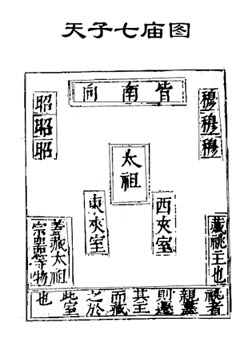 天子七庙图
皆南向
穆穆穆
昭昭昭
太祖
西夾室
東夾室
藏祧主也
蓋藏太祖
宗器等物
祧者
親盡
則遷
其主
而藏
之於
此室
也